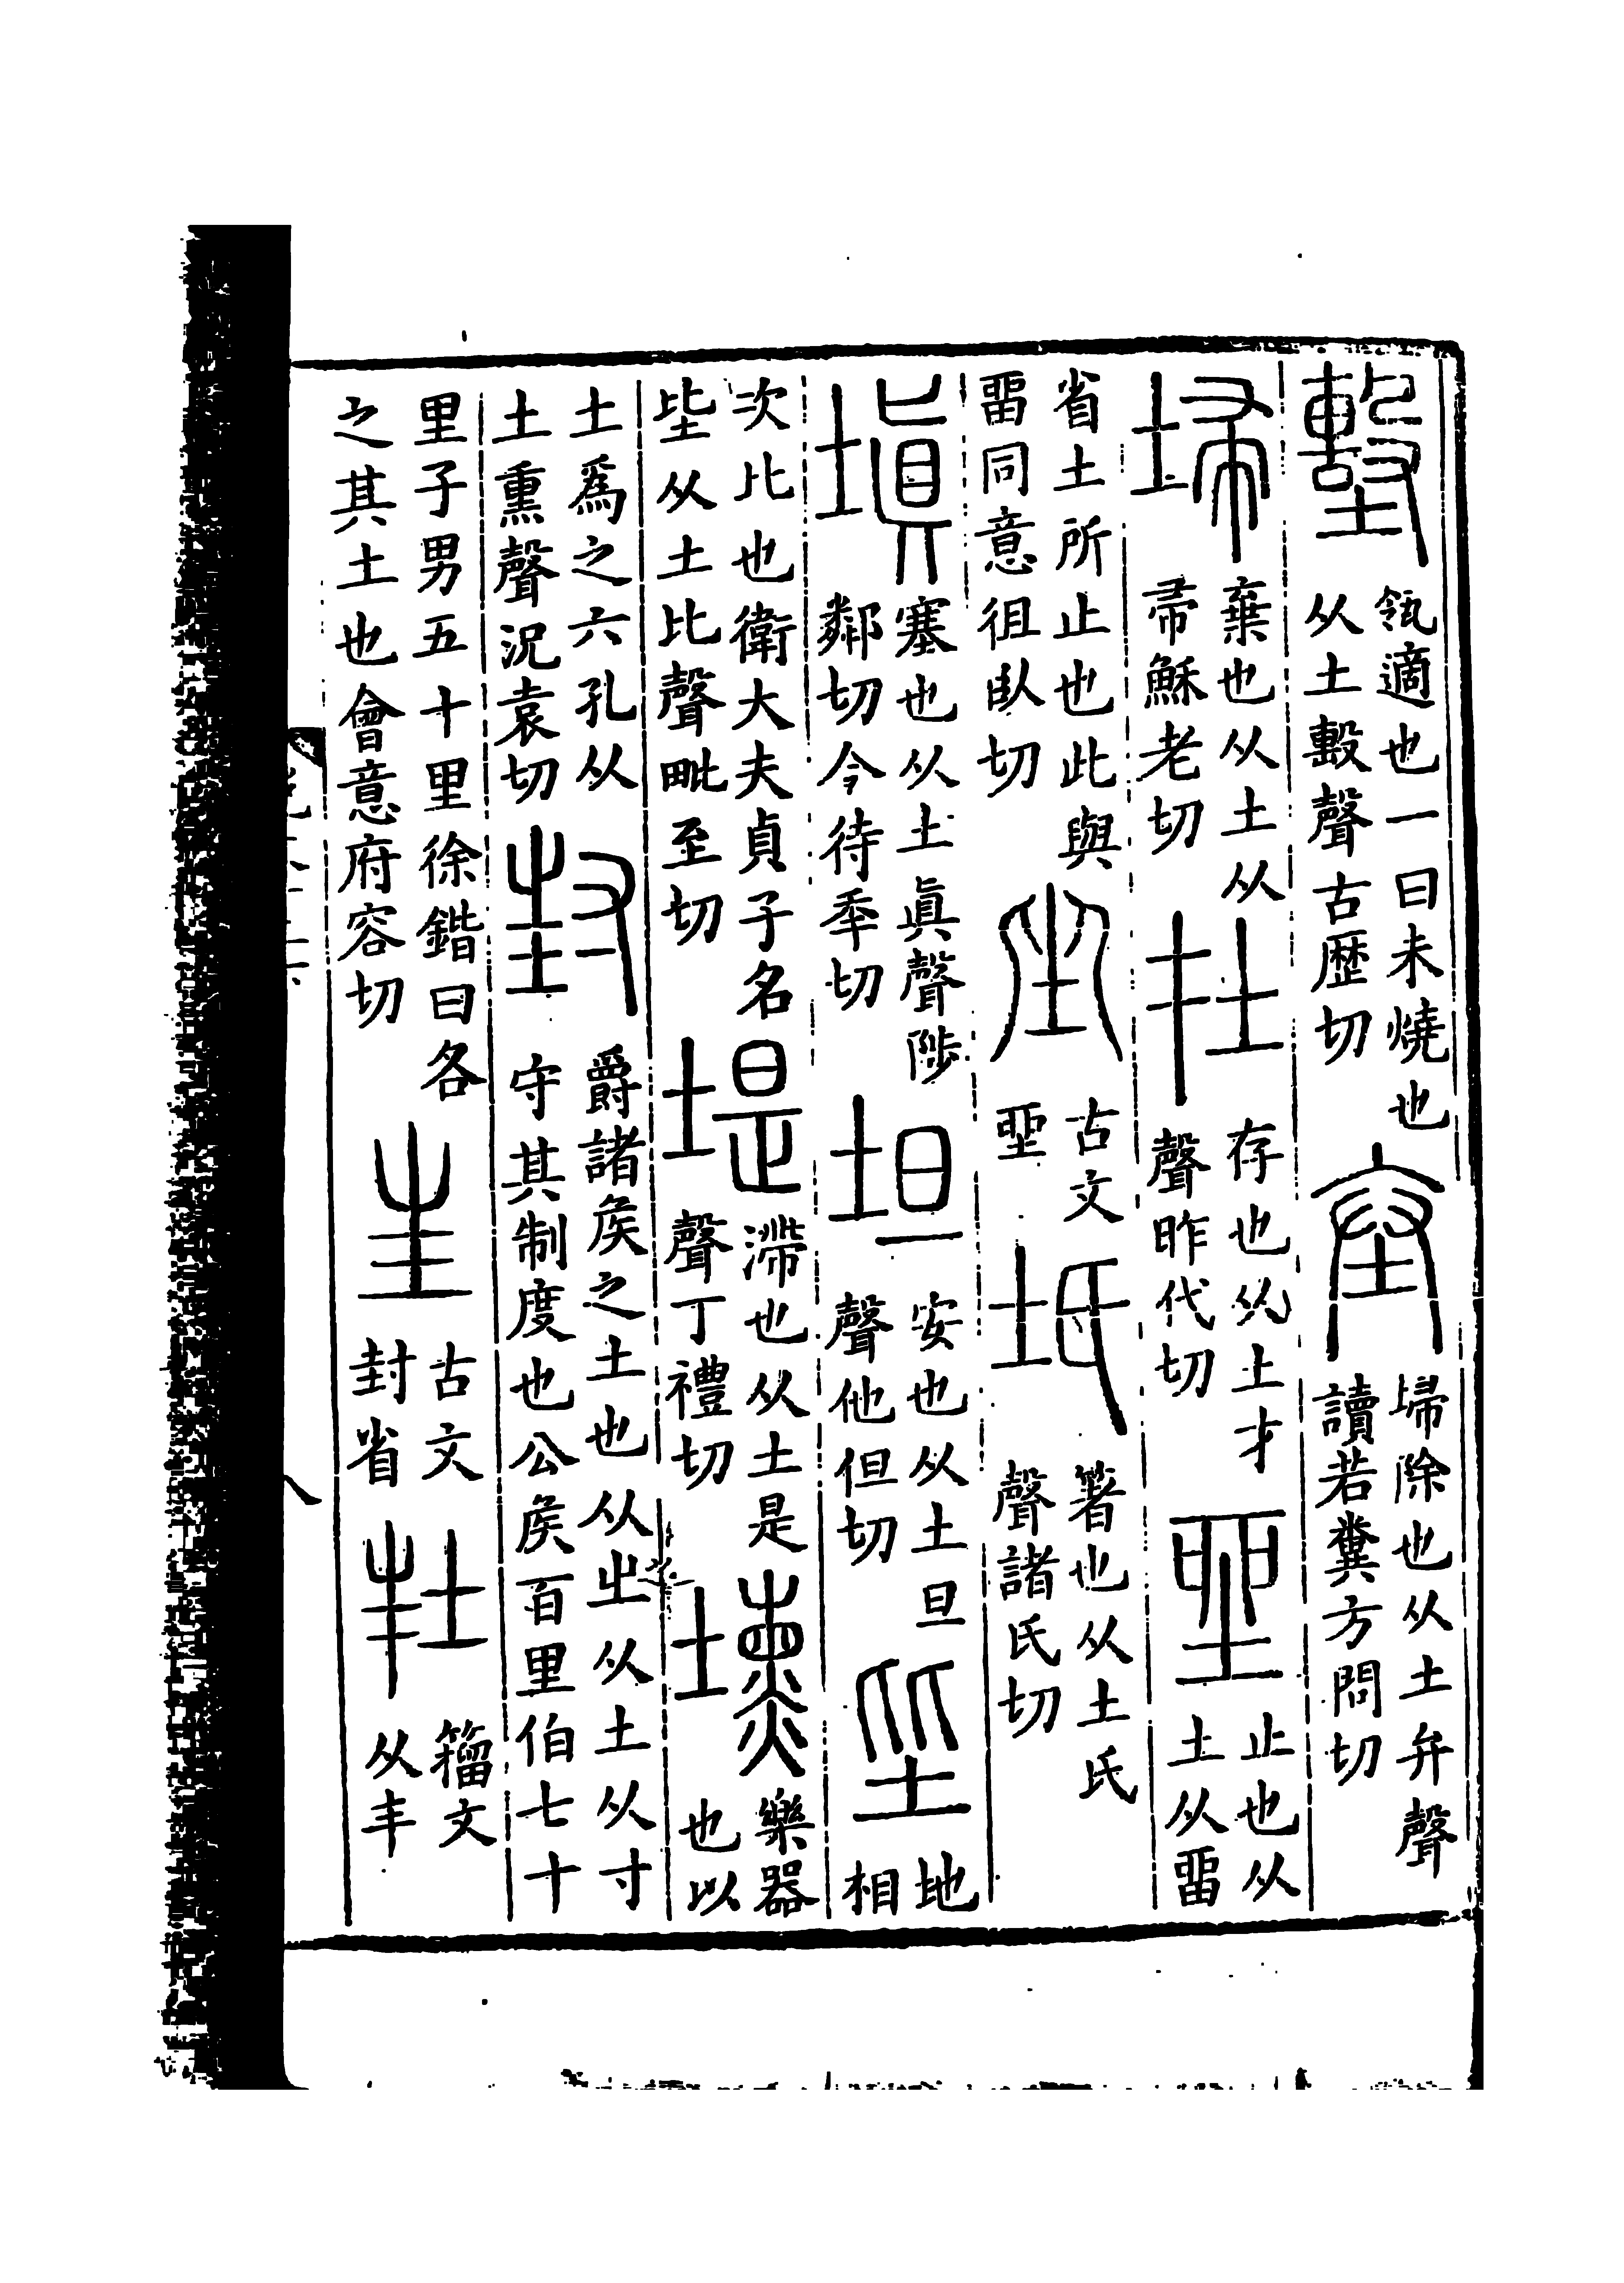 墼瓴適也一曰未燒也从土毄聲古歷切𡊄埽除也从土弁聲讀若糞方問切
埽棄也从土从帚穌老切在存也从土才聲昨代切𡋲止也从土从畱
省土所止也此與畱同意徂臥切坐古文𡋲坁箸也从土氏聲諸氏切
塡塞也从土眞聲陟鄰切今待秊切坦安也从土旦聲他但切坒地相
次比也衛大夫貞子名坒从土比聲毗至切堤滯也从土是聲丁禮切壎樂器也以
土爲之六孔从土熏聲況袁切封爵諸矦之土也从㞢从土从寸守其制度也公矦百里伯七十
里子男五十里徐鍇曰各之其土也會意府容切𡉚古文封省𡊋籒文从丰